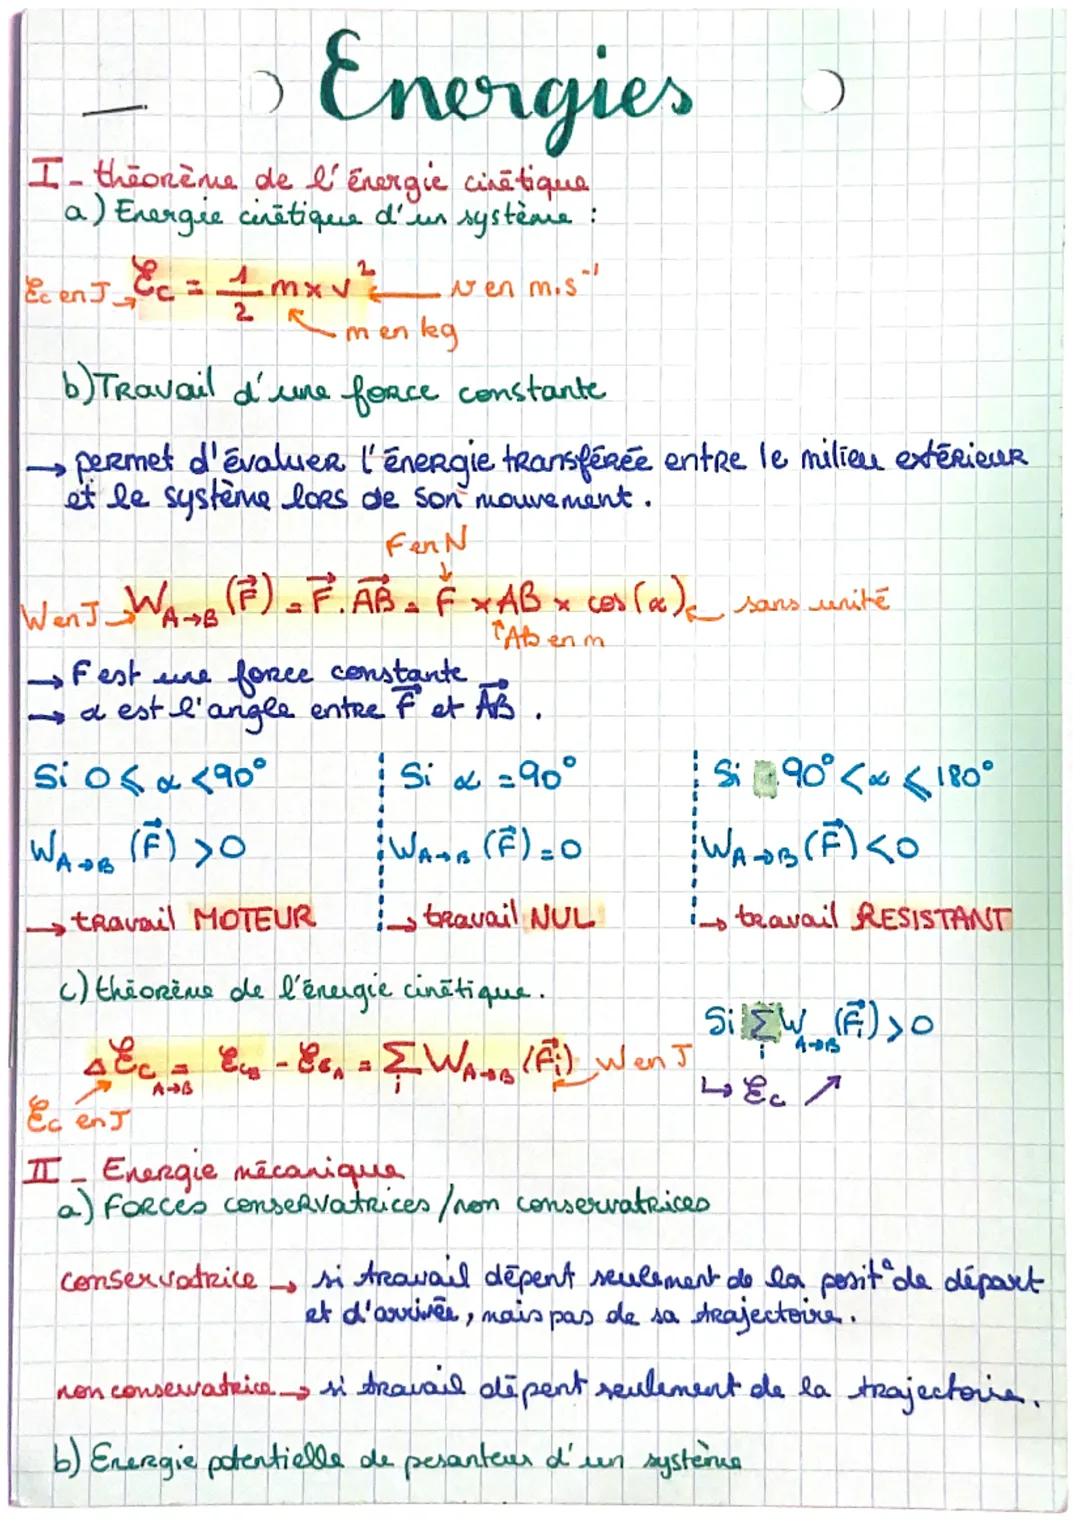 Energies
I - théorème de l'énergie cinétique
a) Energie cinétique d'un système :
Ec en J → Ec = 1/2 m x v² ← v en m.s⁻¹
m en kg
b) Travail d'une force constante
→ permet d'évaluer l'énergie transférée entre le milieu extérieur
et le système lors de son mouvement.
F en N
W en J → W A→B (F⃗) = F⃗.AB⃗ = F x AB x cos(α) ← sans unité
AB en m
→ F est une force constante
→ α est l'angle entre F⃗ et AB⃗.
Si 0 ⩽ α < 90° Si α = 90° Si 90° < α ⩽ 180°
W A→B (F⃗) > 0 W A→B (F⃗) = 0 W A→B (F⃗) < 0
→ travail MOTEUR → travail NUL → travail RESISTANT
c) théorème de l'énergie cinétique.
Si Σi W A→B (F⃗i) > 0
ΔEc A→B = EcB - EcA = Σi W A→B (F⃗i) W en J
↳ Ec ↗
Ec en J
II - Energie mécanique
a) Forces conservatrices/non conservatrices
conservatrice → si travail dépent seulement de la posit° de départ
et d'arrivée, mais pas de sa trajectoire.
non conservatrice → si travail dépent seulement de la trajectoire.
b) Energie potentielle de pesanteur d'un système